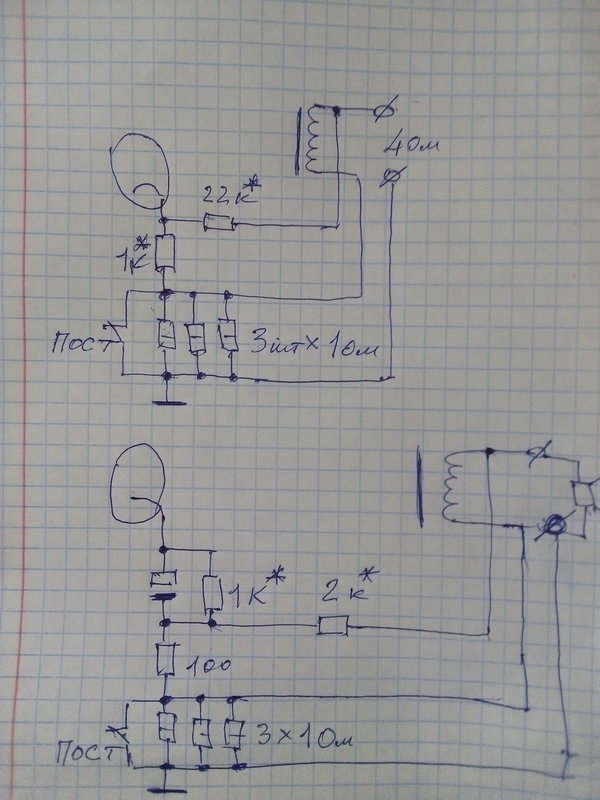 4Ом
22к*
1к*
Пост
3шт×1Ом
1к*
2к*
100
Пост
3×1Ом